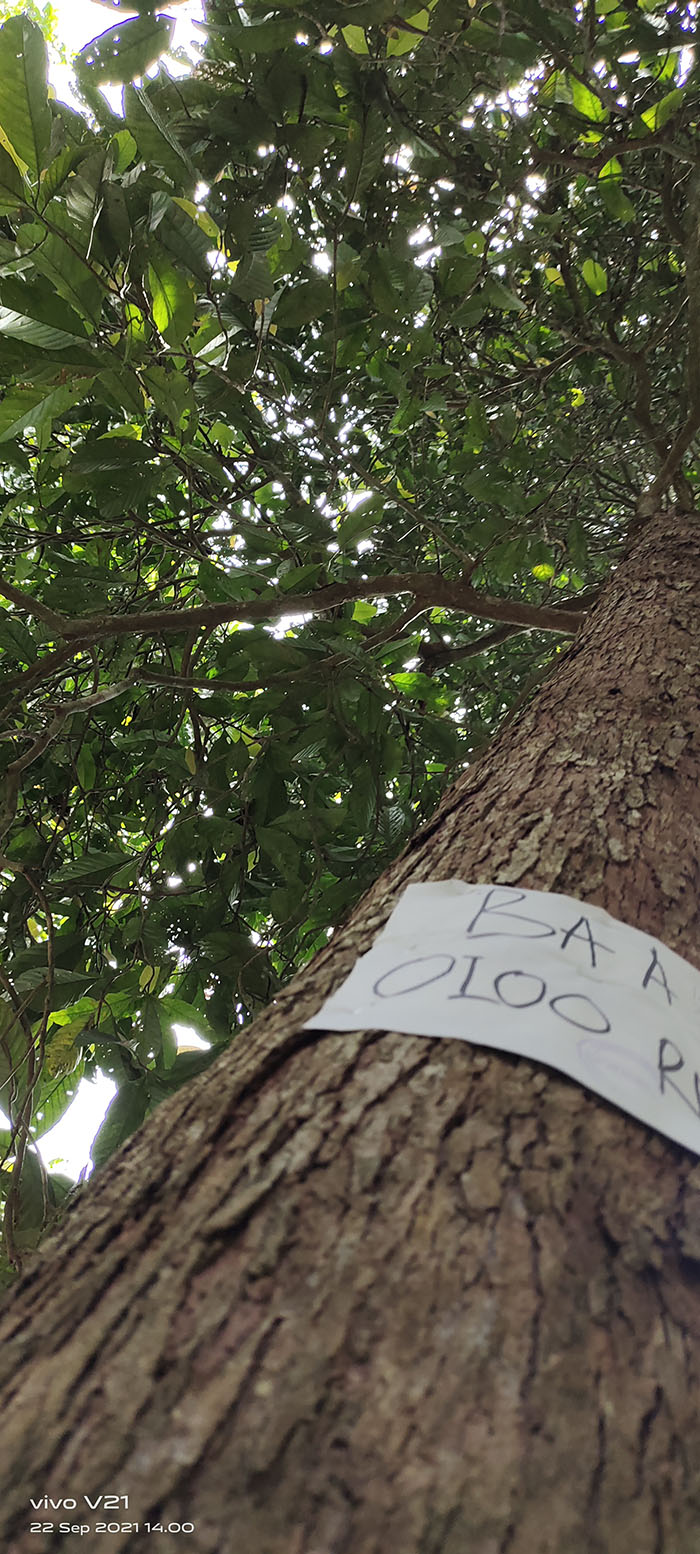 BA A
OIOO
vivo V21
22 Sep 2021 14.00